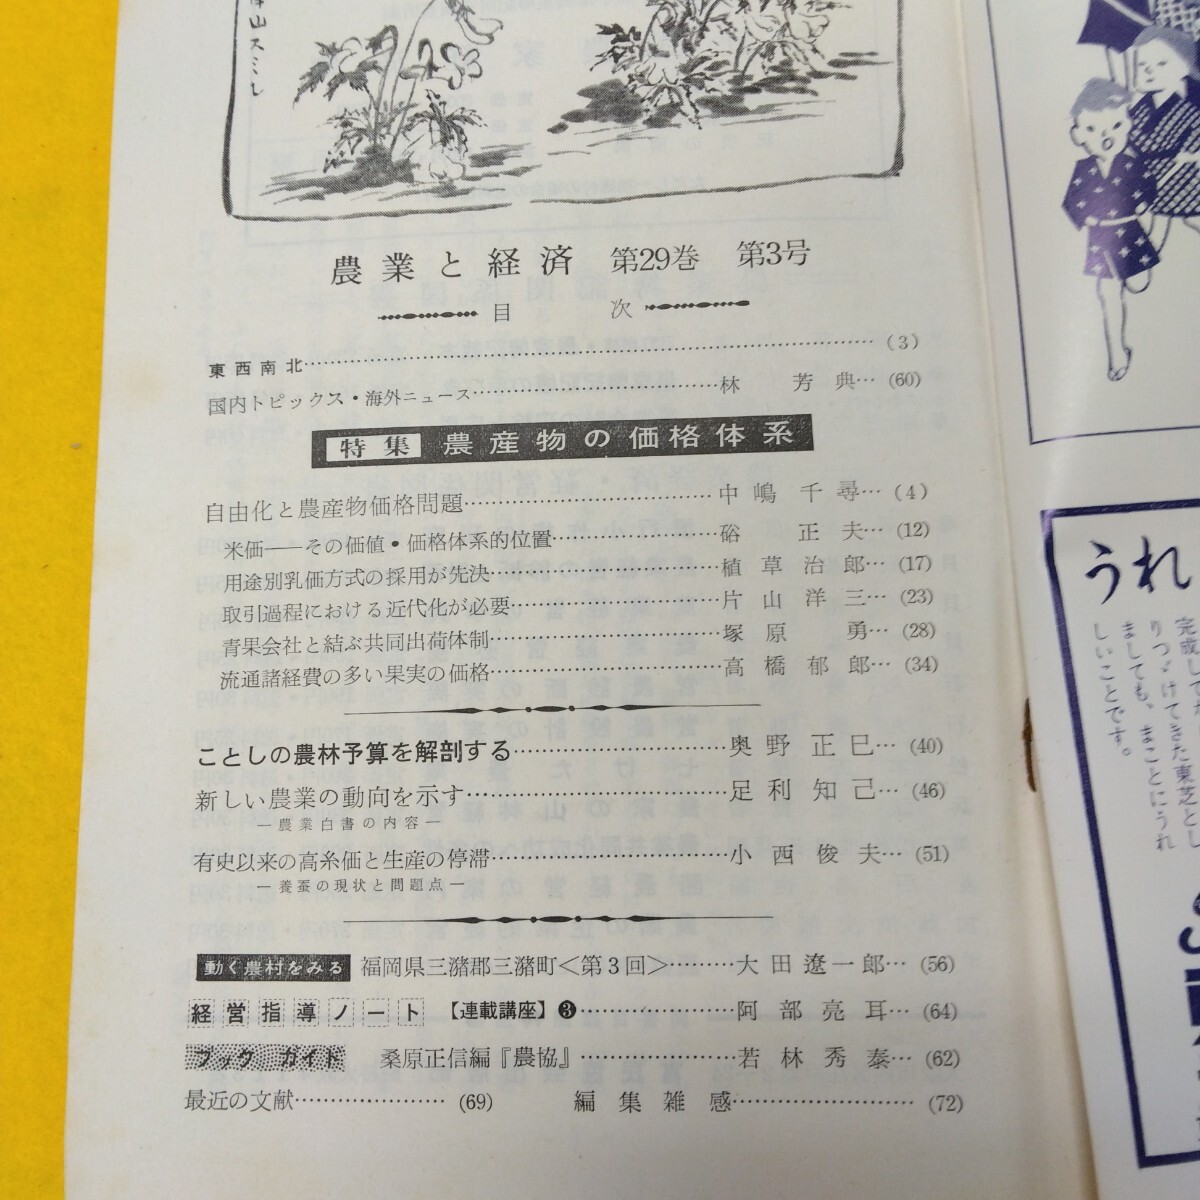 山スミレ
農業と経済 第29巻 第3号
目次
東西南北……(3)
国内トピックス・海外ニュース……林芳典…(60)
特集 農産物の価格体系
自由化と農産物価格問題……中嶋千尋…(4)
米価――その価値・価格体系的位置……硲正夫…(12)
用途別乳価方式の採用が先決……植草治郎…(17)
取引過程における近代化が必要……片山洋三…(23)
青果会社と結ぶ共同出荷体制……塚原勇…(28)
流通諸経費の多い果実の価格……高橋郁郎…(34)
ことしの農林予算を解剖する……奥野正巳…(40)
新しい農業の動向を示す……足利知己…(46)
―農業白書の内容―
有史以来の高糸価と生産の停滞……小西俊夫…(51)
―養蚕の現状と問題点―
動く農村をみる 福岡県三潴郡三潴町<第3回>……大田遼一郎…(56)
経営指導ノート 【連載講座】❸……阿部亮耳…(64)
ブックガイド 桑原正信編『農協』……若林秀泰…(62)
最近の文献……(69) 編集雑感……(72)
うれ
完成して
りつゞけてきた東芝とし
ましても、まことにうれ
しいことです。